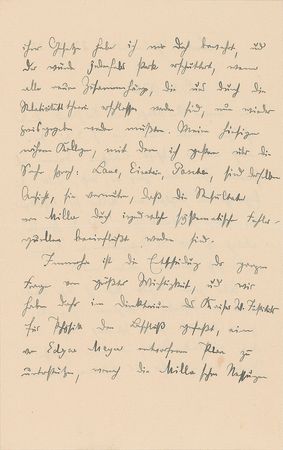 ihrer Gesetze habe ich mir doch bewahrt, und
die würde jedenfalls stark erschüttert, wenn
alle neuen Zusammenhänge, die uns durch die
Relativitätstheorie erschlossen worden sind, nun wieder
preisgegeben werden müßten. Meine hiesigen
näheren Kollegen, mit denen ich gestern über die
Sache sprach: Laue, Einstein, Paschen, sind derselben
Ansicht, sie vermuten, daß die Resultate
von Miller durch irgendwelche systematische Fehler-
quellen beeinflußt worden sind.
Immerhin ist die Entscheidung der ganzen
Frage von größter Wichtigkeit, und wir
haben daher im Direktorium des Kaiser W. Instituts
für Physik den Beschluß gefaßt, einen
von Edgar Meyer entworfenen Plan zu
unterstützen, wonach die Millerschen Messungen